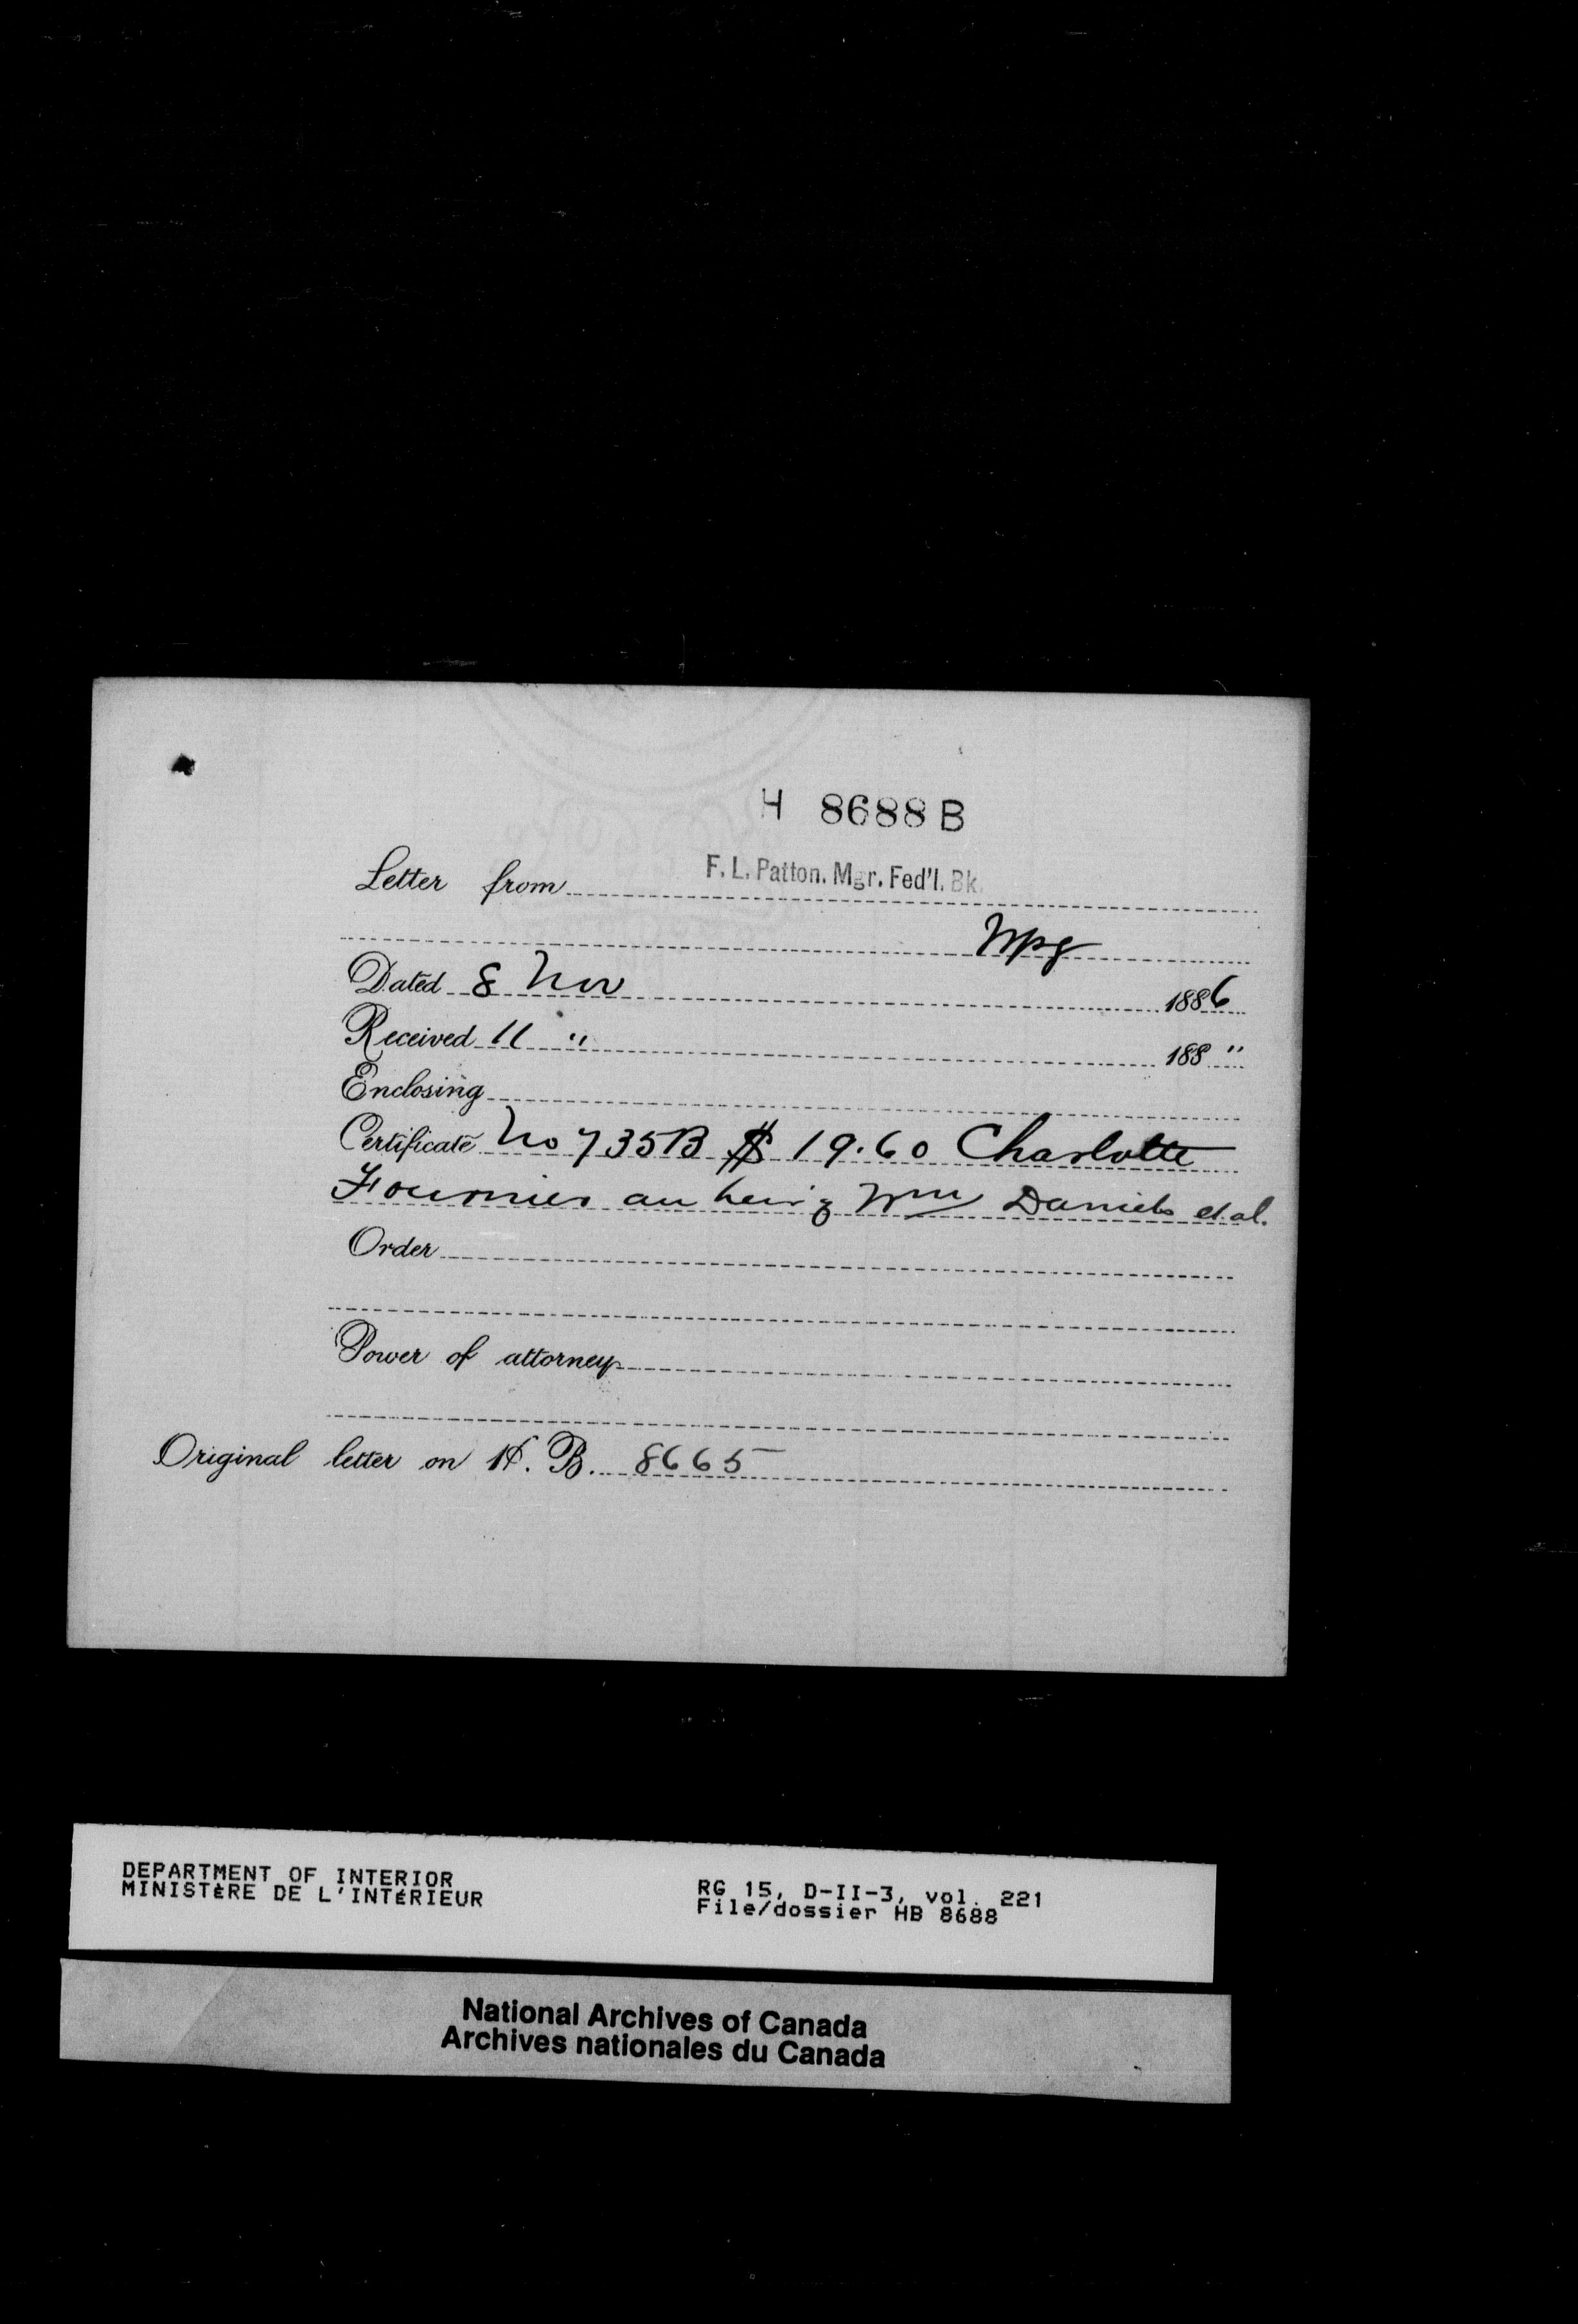 H 8688 B
Letter from F. L. Patton. Mgr. Fed'l. Bk.
Wpg
Dated 8 Nov 1886
Received 11 " 188 "
Enclosing
Certificate No 735B $ 19.60 Charlotte
Fournier an heir of Wm Daniels et al.
Order
Power of attorney
Original letter on H. B. 8665
DEPARTMENT OF INTERIOR
MINISTÈRE DE L'INTÉRIEUR
RG 15, D-II-3, vol. 221
File/dossier HB 8688
National Archives of Canada
Archives nationales du Canada